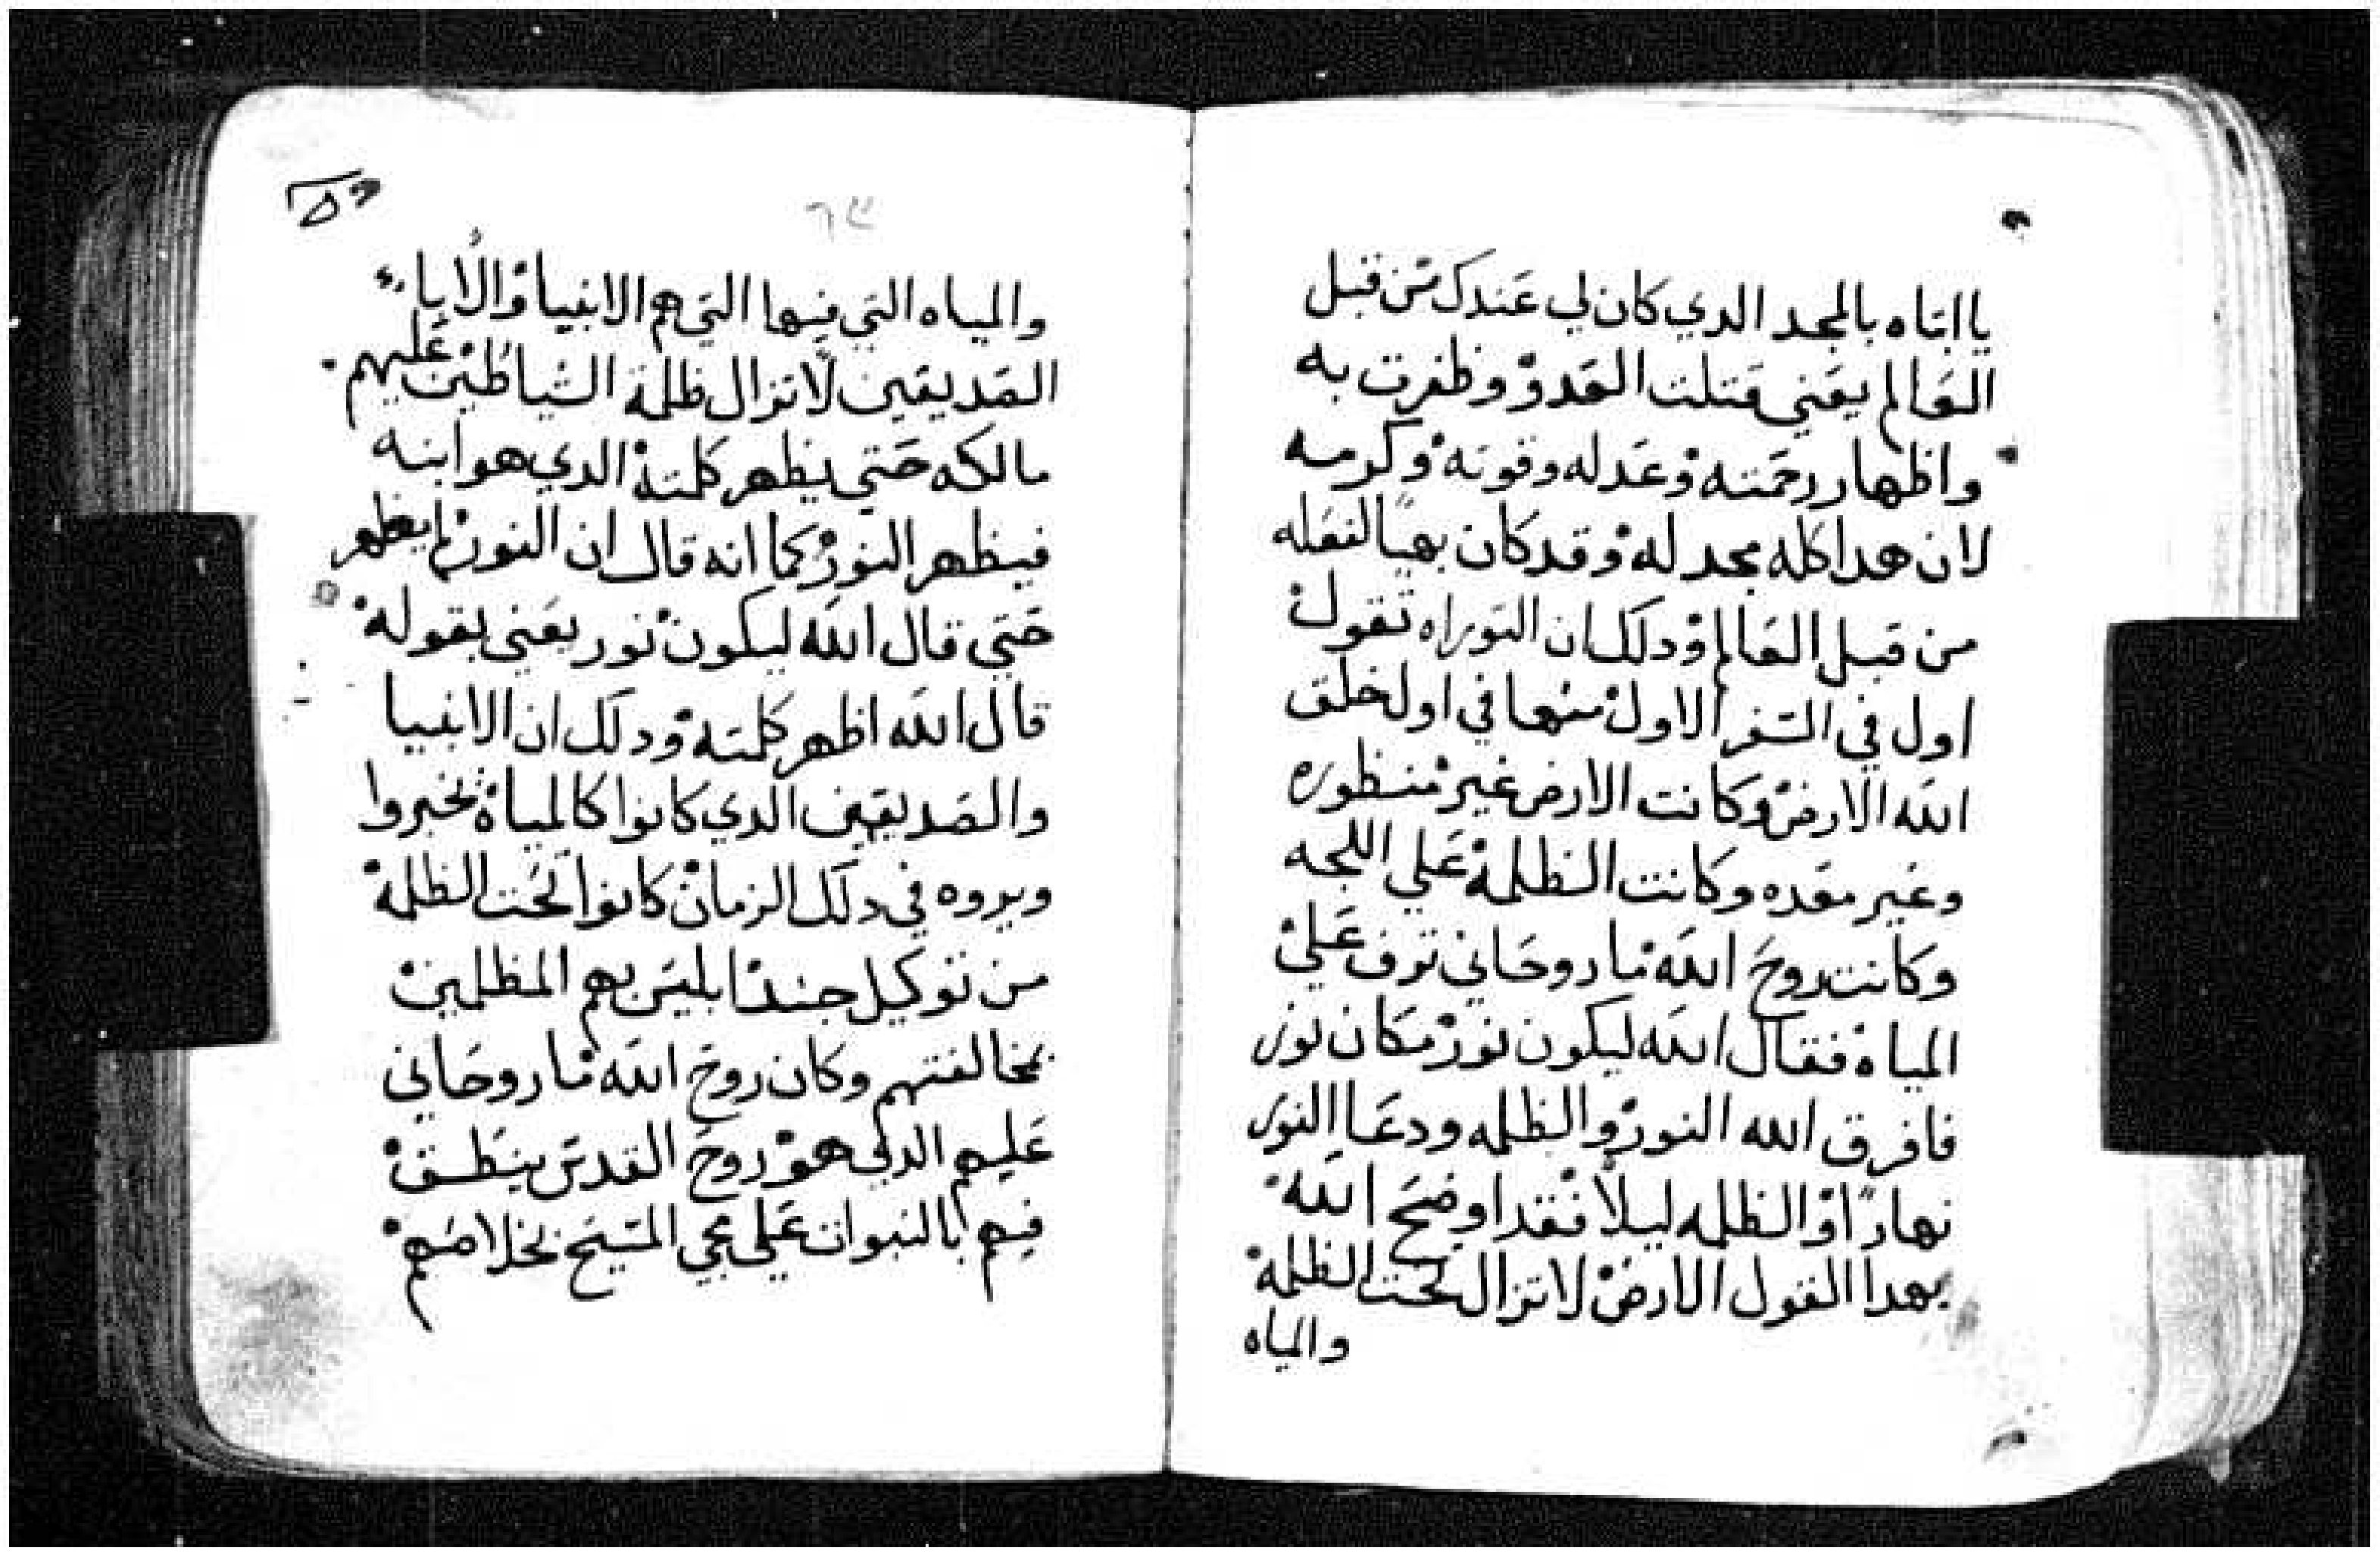 ياابتاه بالمجد الدي كان لي عندك من قبل
العالم يعني قتلت العدو وظفرت به
واظهار رحمته وعدله وقوته وكرمه
لان هدا كله مجد له وقد كان بهيا لنعله
من قبل العالم ودلك ان التوراه تقول
اول في السفر الاول منها في اول خلق
الله الارض وكانت الارض غير منظوره
وغير معده وكانت الظلمة علي اللجه
وكانت روح الله ما روحاني ترف علي
المياه فقال الله ليكون نور مكان نور
فافرق الله النور والظلمه ودعا النور
نهارا والظلمه ليلا فقد اوضح الله
بهدا القول الارض لاتزال تحت الظلمة
والمياه
٦٣
والمياه التي فيها التي هم الانبيا والابا
الصديقين لاتزال ظلمة الشياطين عليهم
مالكه حتي يظهر كلمتة الدي هو ابنه
فيظهر النور كما انه قال ان النور لم يظهر
حتي قال الله ليكون نور يعني بقوله
قال الله اظهر كلمتة ودلك ان الانبيا
والصديقين الدي كانوا كالمياه تخبروا
ويروه في دلك الزمان كانوا تحت الظلمة
من توكيل جند ابليس بهم المظلمين
بمخالفتهم وكان روح الله ما روحاني
عليهم الدي هو روح القدس ينطق
فيهم بالنبوات علي مجي المسيح بخلاصهم